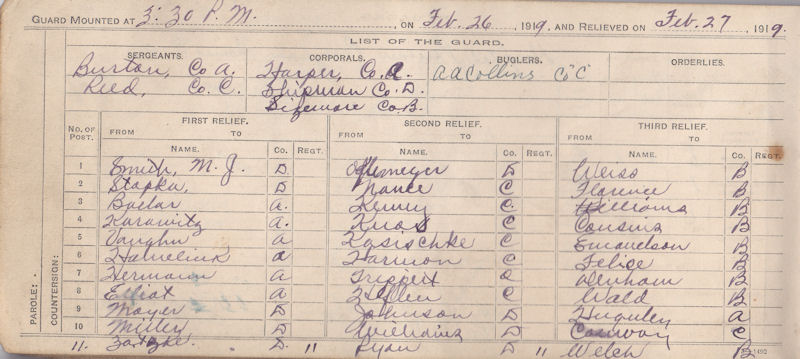 GUARD MOUNTED AT 3:30 P.M. , ON Feb. 26 , 1919, AND RELIEVED ON Feb. 27 , 1919.
LIST OF THE GUARD.
SERGEANTS. CORPORALS. BUGLERS. ORDERLIES.
Burton, Co A. Harper, Co. A. A A Collins Co "C"
Reed, Co. C. Shipman Co. D.
Sizemore Co. B.
FIRST RELIEF. SECOND RELIEF. THIRD RELIEF.
No. OF POST. FROM TO FROM TO FROM TO
NAME. Co. REGT. NAME. Co. REGT. NAME. Co. REGT.
1 Smith, M. J. D. D Weiss B
2 Stapka, D. Nance C Florence B
3 A. C. Williams B
4 A. C Cousins B
5 Vaughn A Kasischke C Emanelson B
6 a Harmon C Felice B
7 Hermann A Trippert a Denham B
8 Elliot A C Wald B
9 Mayer D Johnson D A
10 Miller D Williams D Conway C
11. D. " Ryan D " Welch B
PAROLE:
COUNTERSIGN: